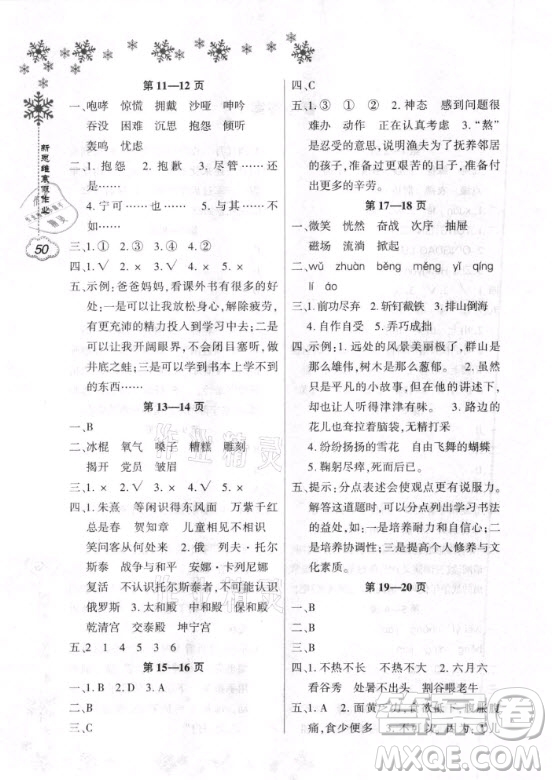 新思维寒假作业
50
第11—12页
一、咆哮 惊慌 拥戴 沙哑 呻吟
吞没 困难 沉思 抱怨 倾听
轰鸣 忧虑
二、1. 抱怨 2. 抱歉 3. 尽管…… 还
是……
4. 宁可…… 也…… 5. 与其……
不如……
三、①② ④
四、1. √ 2. × 3. √ 4. ×
五、示例:爸爸妈妈,看课外书有很多好
处:一是可以让我放松身心,解除疲劳,
有更充沛的精力投入到学习中去;二是
可以让我开阔眼界,不闭目塞听,做
井底之蛙;三是可以学到书本上学不到
的东西……
第13—14页
一、B
二、冰棍 氧气 嗓子 糟糕 雕刻
揭开 党员 皱眉
三、1. × 2. √ 3. × 4. × 5. √
四、1. 朱熹 等闲识得东风面 万紫千红
总是春 贺知章 儿童相见不相识
笑问客从何处来 2. 俄 列夫·托尔
斯泰 战争与和平 安娜·卡列尼娜
复活 不认识托尔斯泰者,不可能认识
俄罗斯 3. 太和殿 中和殿 保和殿
乾清宫 交泰殿 坤宁宫
五、2 1 4 5 3 6
第15—16页
一、1. B 2. D 3. A
二、B
三、C
四、C
五、1. ③ ① ② 2. 神态 感到问题很
难办 动作 正在认真考虑 3. “熬”
是忍受的意思,说明渔夫为了抚养邻居
的孩子,准备忍受更艰苦的生活,付出
更多的辛劳。
第17—18页
一、微笑 恍然 奋战 次序 抽屉
磁场 流淌 掀起
二、wū zhuàn bèng měng yī qíng
lí áo
三、1. 前功尽弃 2. 斩钉截铁 3. 排山倒海
4. 自作自受 5. 弄巧成拙
四、示例:1. 远处的风景美丽极了,群山是
那么雄伟,树木是那么葱郁。 2. 一件
很平凡的小事,但在他的讲述下,
却让人听得津津有味。 3. 路边的
花儿也耷拉着脑袋,无精打采
4. 纷纷扬扬的雪花 自由飞舞的蝴蝶
5. 鞠躬尽瘁,死而后已
五、提示:分点表述使观点更有说服力。
解答这道题时,可以分点列出学习书法
的益处,如:一是培养耐力和自信心;二
是培养协调性;三是提高个人修养与文
化素质。
第19—20页
一、B
二、B
三、B
四、1. 不热不长 不热不大 2. 六月六
看谷秀 处暑不出头 割谷喂老牛
五、1. A 2. 面黄
痛,食少便多